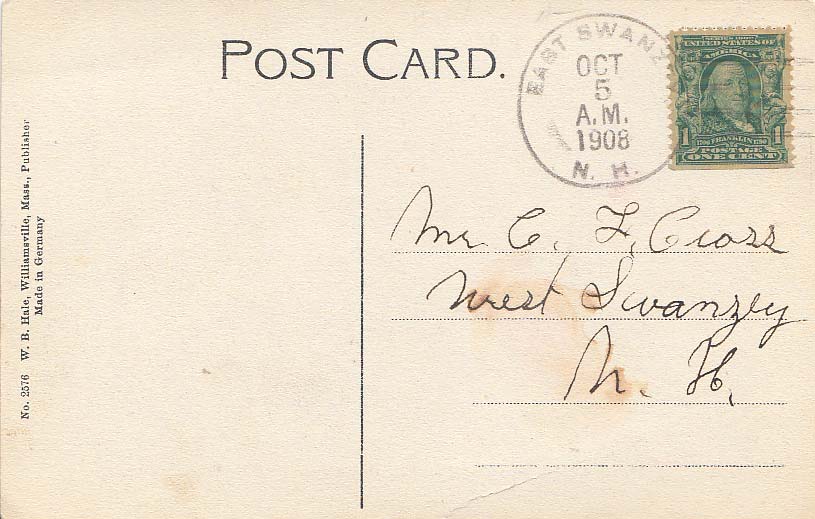 POST CARD.
EAST SWANZ
OCT
5
A.M.
1908
N. H.
SERIES 1902
UNITED STATES OF
AMERICA
1 1706 FRANKLIN 1790 1
POSTAGE
ONE CENT
Mr. C. F. Cross
West Swanzey
N. H.
No. 2576 W. B. Hale, Williamsville, Mass., Publisher
Made in Germany